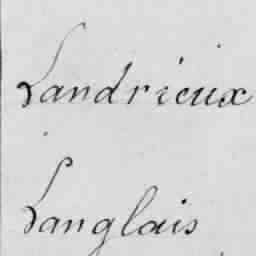 Landrieux
Langlais